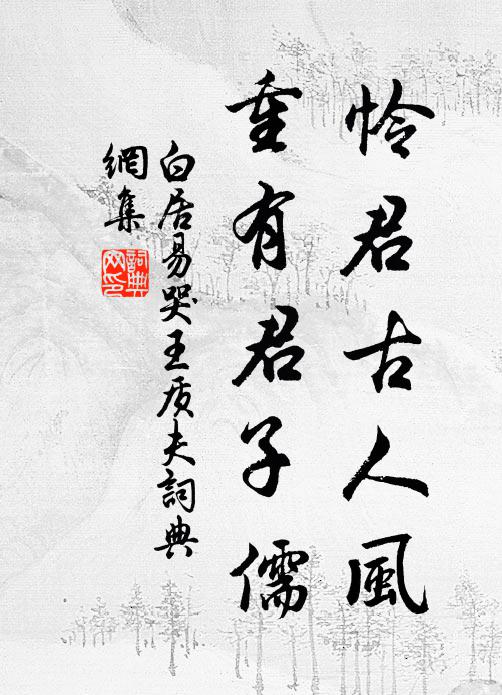 怜君古人風
重有君子儒
白居易哭王质夫詞典
網集
詞典
网印